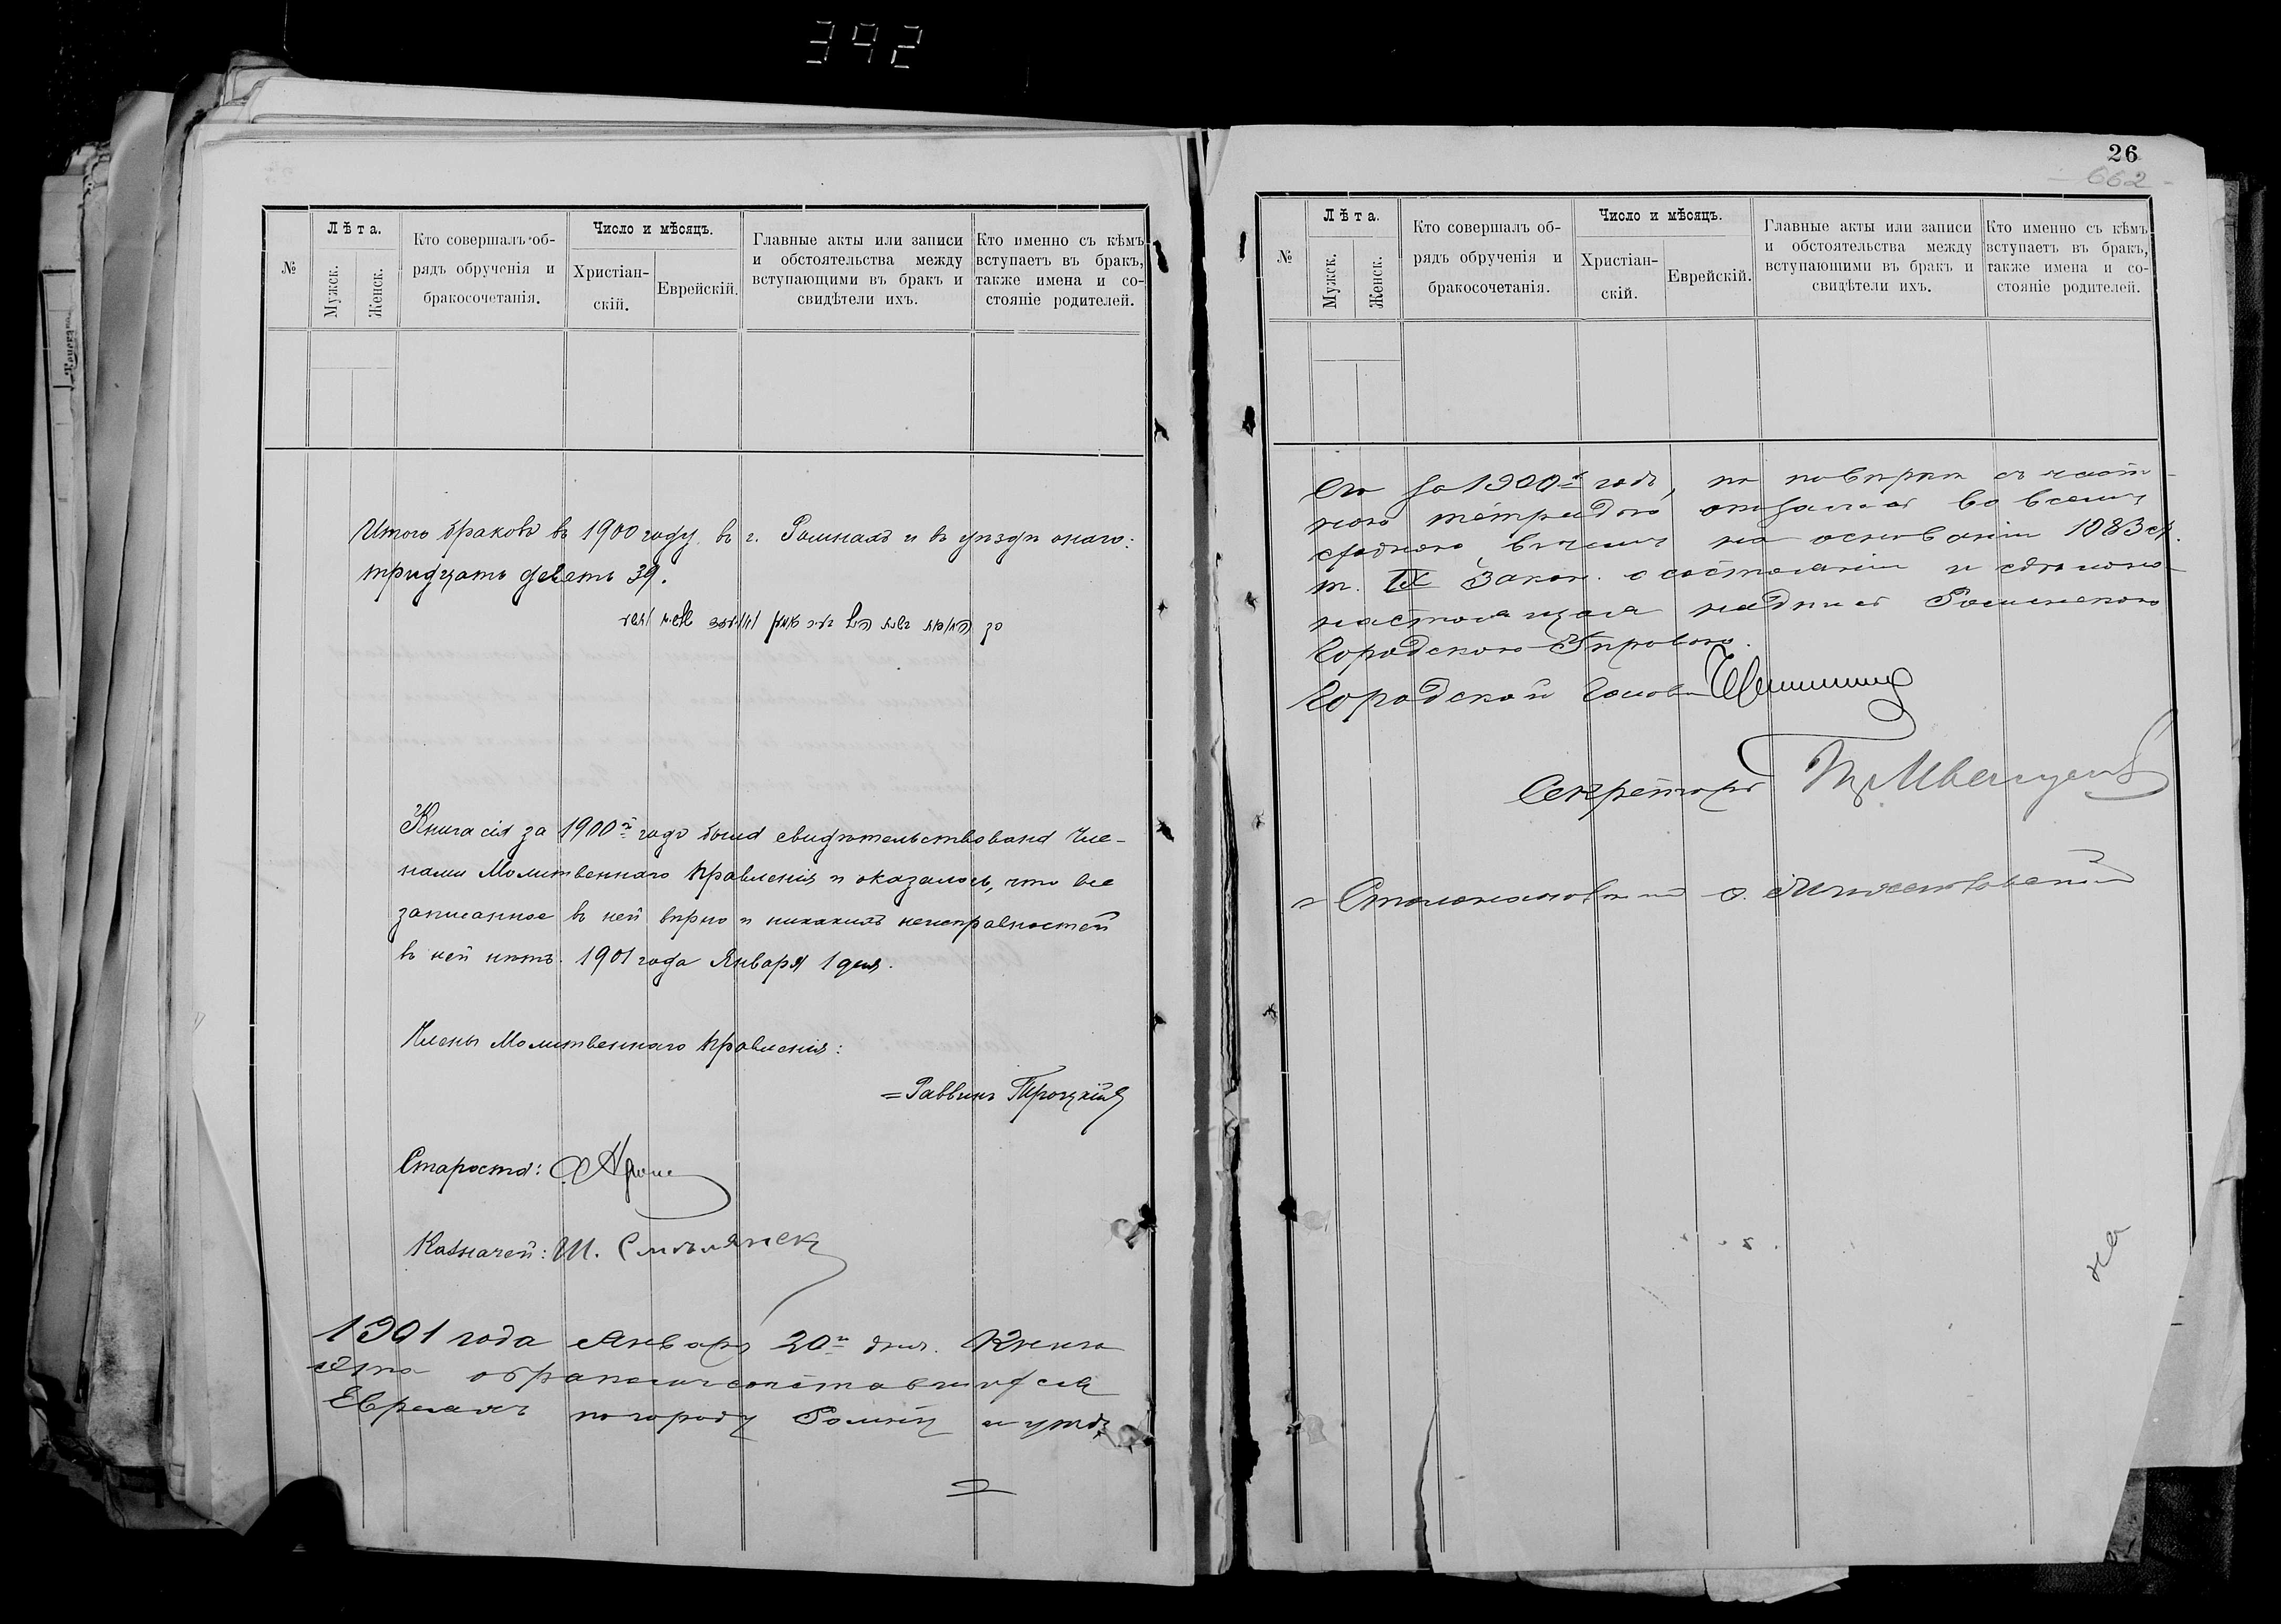 392
№
Лѣта.
Мужск.
Женск.
Кто совершалъ об-
рядъ обрученія и
бракосочетанія.
Число и мѣсяцъ.
Христіан-
скій.
Еврейскій.
Главные акты или записи
и обстоятельства между
вступающими въ бракъ и
свидѣтели ихъ.
Кто именно съ кѣмъ
вступаетъ въ бракъ,
также имена и со-
стояніе родителей.
Итого браковъ въ 1900 году въ г. Ромнахъ и въ уѣздѣ онаго:
тридцать девять 39.
Книга сія за 1900й годъ была свидѣтельствована Чле-
нами Молитвеннаго Правленія и оказалось, что все
записанное въ ней вѣрно и никакихъ неисправностей
въ ней нѣтъ. 1901 года Января 1 дня.
Члены Молитвеннаго Правленія:
=Раввинъ Троцкій
Староста:
Казначей: Ш.
1901 года Января 20го дня. Книга
эта о бракосочетавшихся
Евреяхъ по городу Ромну и уѣзд
26
662
№
Лѣта.
Мужск.
Женск.
Кто совершалъ об-
рядъ обрученія и
бракосочетанія.
Число и мѣсяцъ.
Христіан-
скій.
Еврейскій.
Главные акты или записи
и обстоятельства между
вступающими въ бракъ и
свидѣтели ихъ.
Кто именно съ кѣмъ
вступаетъ въ бракъ,
также имена и со-
стояніе родителей.
за 1900й годъ, по повѣркѣ съ част-
ною тетрадью оказалась во всемъ
сходною, въ чемъ на основаніи 1083 ст.
т. IX Закон. о состояніи и сдѣлана
настоящая надпись Роменскою
Городскою Управою.
Городской Голова
Секретарь
Столоначальникъ